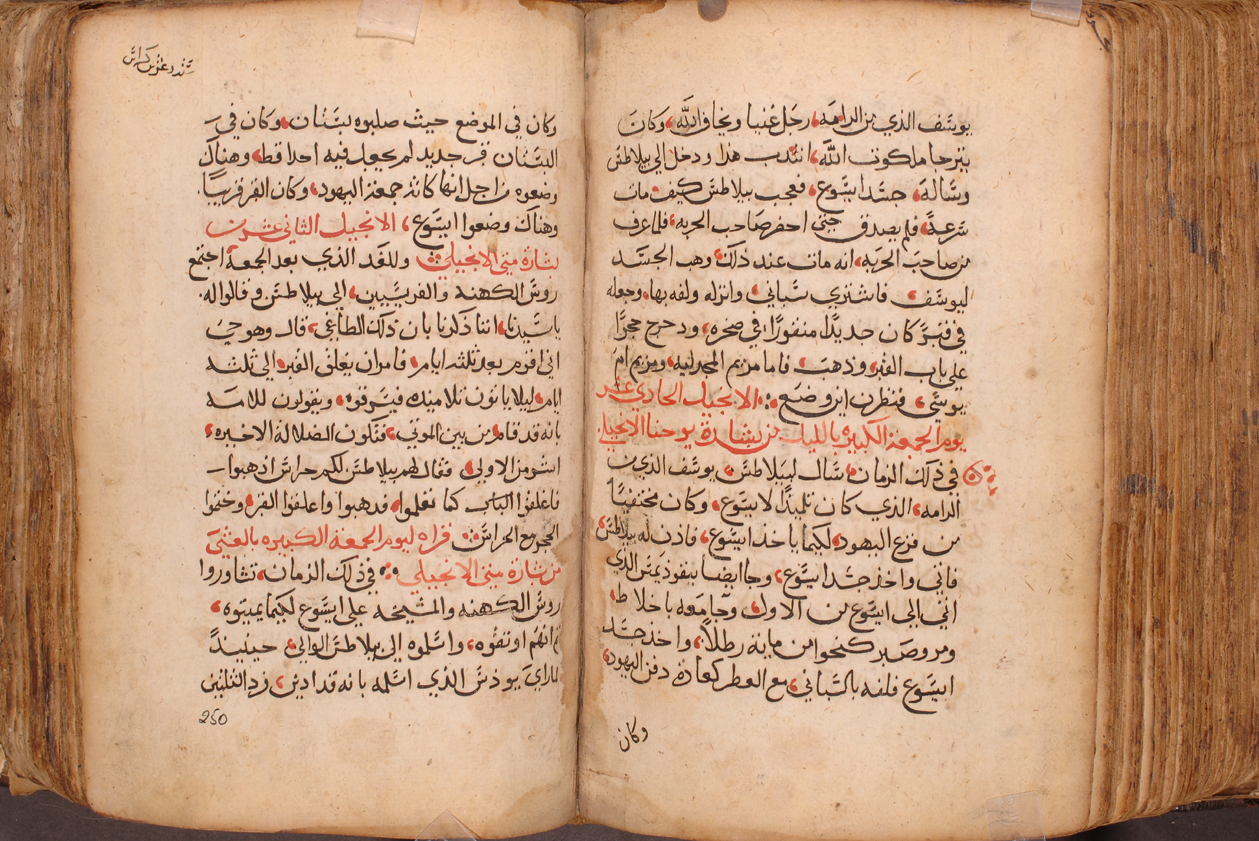 يوسف الذي من الرامه، رجل غنيا ويخاف الله، وكان
يترجا ملكوت الله، انتدب هذا ودخل الي بيلاطس
وساله، جسد ايسوع، فعجب بيلاطس كيف مات
سرعةً، فلم يصدق حتي احضر صاحب الحربه، فلما عرف
من صاحب الحربه، انه مات عند ذلك، وهب الجسد
ليوسف، فاشتري سباني، وانزله ولفه بها، وجعله
في قبرٍ كان جديدًا منقورًا، في صخره، ودحرج حجرًا
علي باب القبر، وذهب، فاما مريم المجدليه، ومريم ام
يوسي، فنظرن اين وضع، الانجيل الحادي عشر
يوم الجمعة الكبيره بالليل من بشارة يوحنا الانجيلي
في ذلك الزمان، سال لبيلاطس، يوسف الذي من
الرامه، الذي كان تلميذًا لايسوع، وكان مختفيًا
من فزع اليهود، لكيما ياخذ ايسوع، فاذن له بيلاطس،
فاتي واخذ جسد ايسوع، وجا ايضا نيقوديمس الذي
اتي الي ايسوع من الاول، وجا معه باخلاط،
ومر وصبر كنحوا من ماية رطلاً، واخذ جسد
ايسوع فلفه بالسباني، مع العطر كعادة دفن اليهود،
وكان
وكان في الموضع حيث صلبوه بستان، وكان في
البستان قبر جديد لم يجعل فيه احد قط، وهناك
وضعوه من اجل انها كانت جمعة اليهود، وكان القبر قريباً،
وهناك وضعوا ايسوع، الانجيل الثاني عشر من
بشارة متي الانجيلي وللغد الذي بعد الجمعة اجتمع
روس الكهنة والفريسيين، الي بيلاطس وقالوا له
ياسيدنا، اننا ذكرنا بان ذلك الطاغي، قال وهو حي
اني اقوم بعد ثلثة ايام، فامر ان يغلق القبر، الي ثلثة
ايام، ليلا ياتون تلاميذه فيسرقوه، ويقولون للامة
بانه قد قام من بين الموتي، فتكون الضلالة الاخيره،
اشر من الاولي، فقال لهم بيلاطس لكم حراس اذهبوا
فاغلقوا الباب كما تعلموا، فذهبوا واغلقوا القبر، وختموا
الحجر مع الحراس، قراه ليوم الجمعة الكبيره بالعشي
من بشارة متي الانجيلي في ذلك الزمان، تشاوروا
روس الكهنه والمشيخه علي ايسوع لكيما يميتوه،
ثم انهم اوثقوه، واسلموه الي بيلاطس الوالي، حينيدً
لما راي يوذس الذي اسلمه بانه قد ادين، رد الثلثين
250